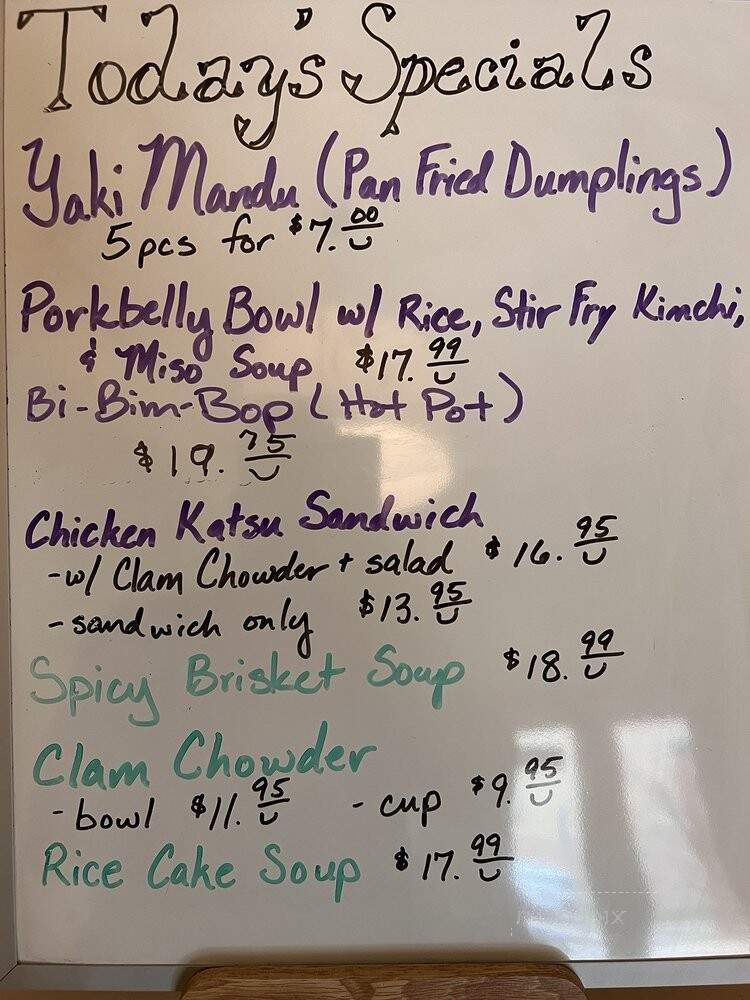 Today's Specials
Yaki Mandu (Pan Fried Dumplings)
5 pcs for $7.00
Porkbelly Bowl w/ Rice, Stir Fry Kimchi,
& Miso Soup $17.99
Bi-Bim-Bop (Hot Pot)
$19.75
Chicken Katsu Sandwich
-w/ Clam Chowder + salad $16.95
-sandwich only $13.95
Spicy Brisket Soup $18.99
Clam Chowder
- bowl $11.95 - cup $9.95
Rice Cake Soup $17.99